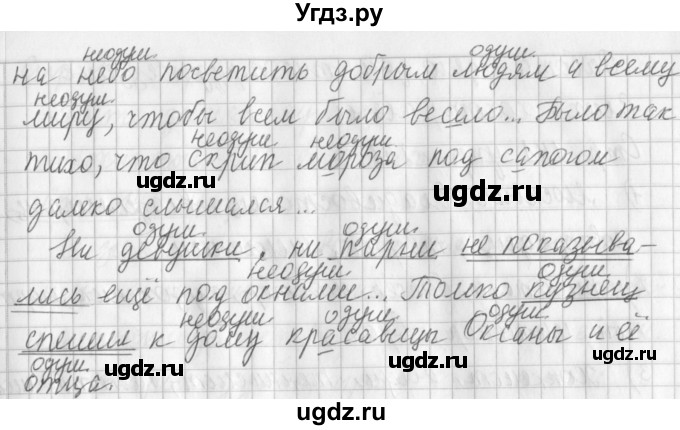 Угдз.ру
неодуш. одуш.
на небо посветить добрым людям и всему
неодуш.
миру, чтобы всем было весело... Было так
неодуш неодуш.
тихо, что скрип мороза под сапогом
ugdz.ru ugdz.ru
далеко слышался...
одуш. одуш.
Ни девушки, ни парни не показыва-
неодуш. одуш.
лись ещё под окнами... Только кузнец
неодуш. одуш. одуш.
спешил к дому красавицы Оксаны и её
одуш.
отца.
ugdz.ru ugdz.ru ugdz.ru
ugdz.ru